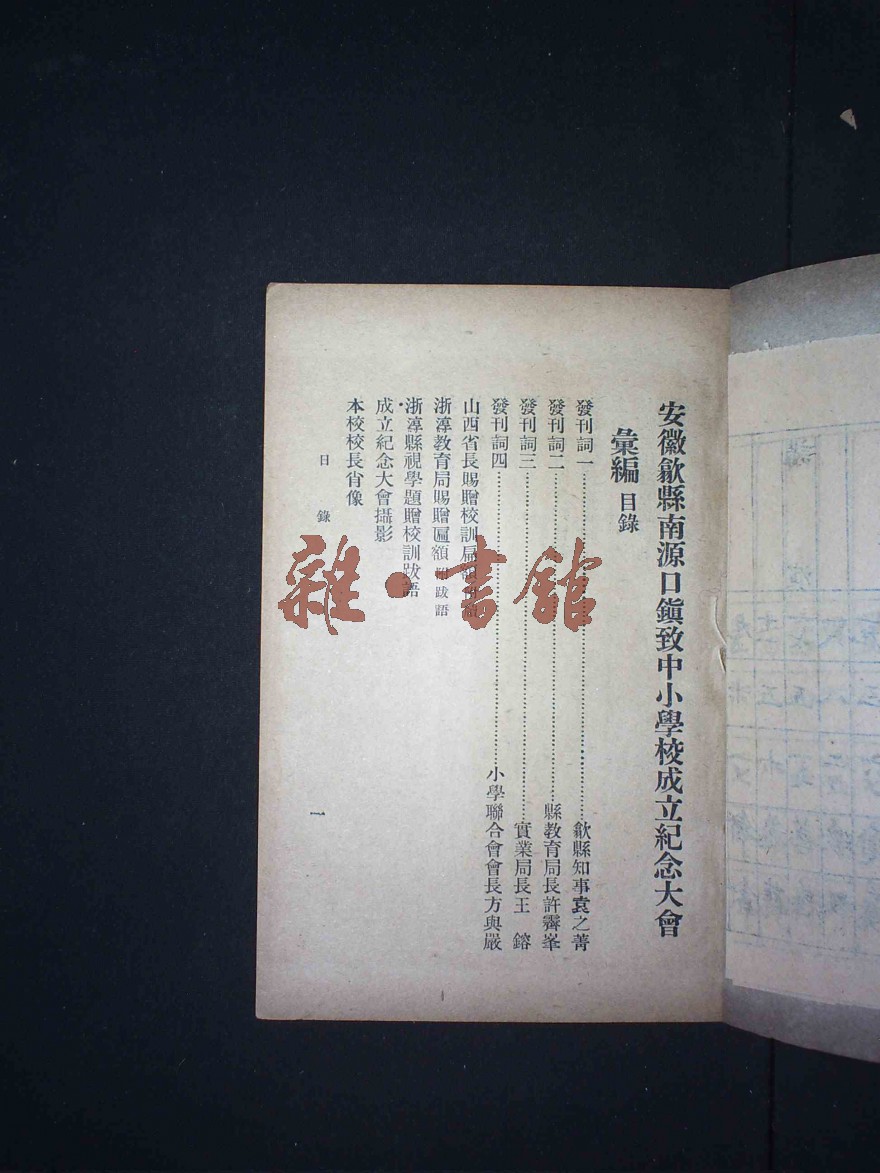 安徽歙縣南源口鎭致中小學校成立紀念大會
彙編 目錄
發刊詞一⋯⋯歙縣知事袁之菁
發刊詞二⋯⋯縣教育局長許霽峯
發刊詞三⋯⋯實業局長王 鎔
發刊詞四⋯⋯小學聯合會會長方與嚴
山西省長賜贈校訓扁額
浙淳教育局賜贈匾額 附跋語
浙淳縣視學題贈校訓跋語
成立紀念大會攝影
本校校長肖像
目 錄
一
雜·書館